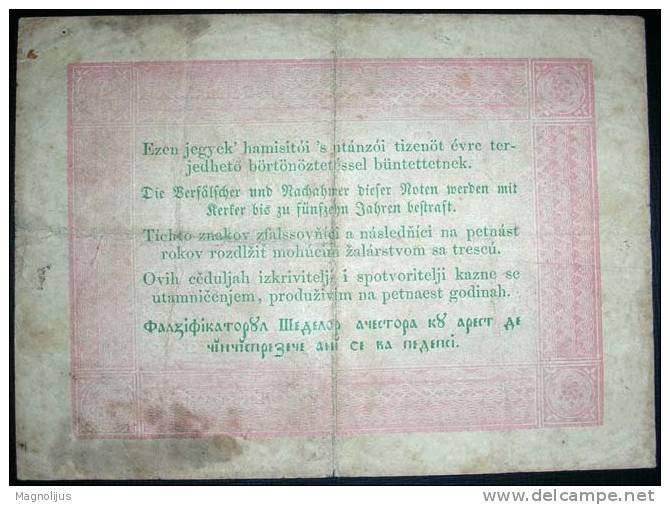 Ezen jegyek' hamisitói 's utánzói tizenöt évre ter-
jedhető börtönöztetéssel büntettetnek.
Die Verfälscher und Nachahmer dieser Noten werden mit
Kerker bis zu fünfzehn Jahren bestraft.
Tíchto znakov zfalssovňíci a následňíci na petnást
rokov rozdlžiť mohúcím žalárstvom sa trescú.
Ovih cěduljah izkrivitelji i spotvoritelji kazne se
utamničenjem, produživim na petnaest godinah.
Фалціфікаторꙋл Шеделор ачестора кꙋ арест де
чінчіспрезече ані се ва педепсі.
Magnolijus
delcampe.net